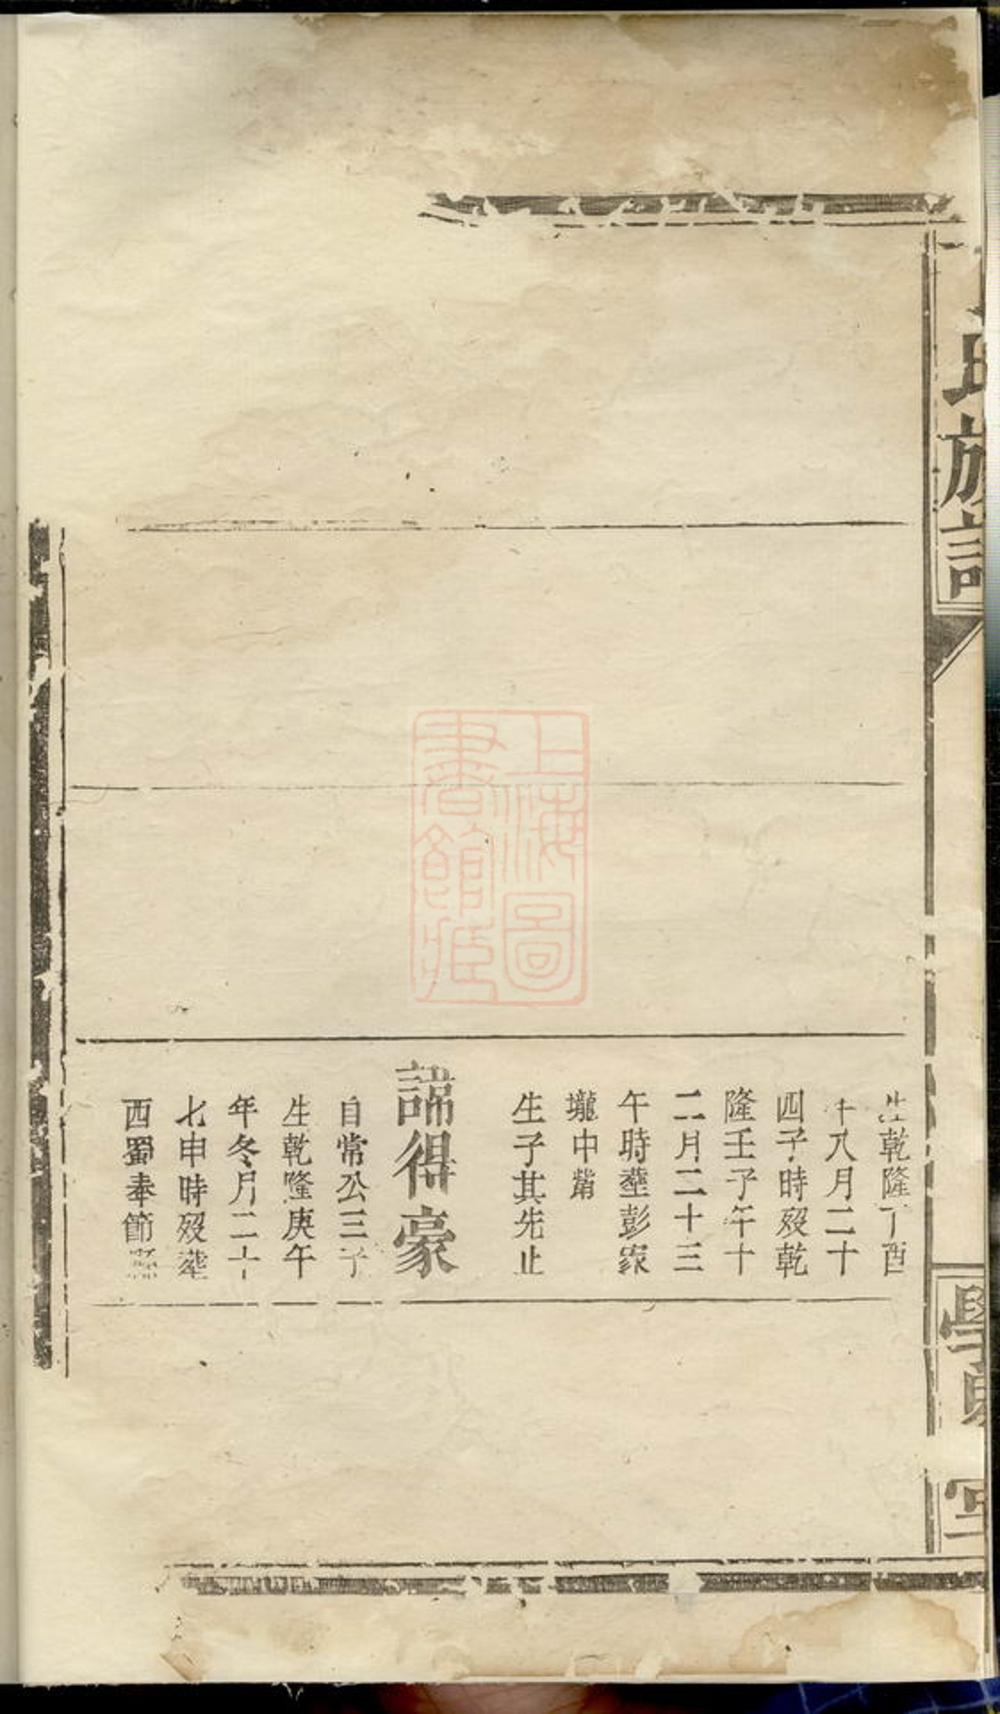 氏族譜
生乾隆丁酉
年八月二十
四子時歿乾
隆壬子年十
二月二十三
午時塟彭家
壠中嘴
生子其先止
諱得豪
自常公三子
生乾隆庚午
年冬月二十
七申時歿塟
西蜀奉節縣
上海圖
書館藏